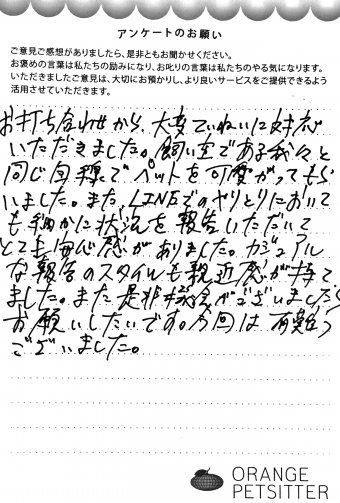 アンケートのお願い
ご意見ご感想がありましたら、是非ともお聞かせください。
お褒めの言葉は私たちの励みになり、お叱りの言葉は私たちのやる気になります。
いただきましたご意見は、大切にお預かりし、より良いサービスをご提供できるよう
活用させていただきます。
お打ち合わせから、大変ていねいに対応
いただきました。飼い主である我々と
同じ目線でペットを可愛がってもら
いました。また、LINEでのやりとりにおいて
も細かに状況を報告いただいて
とても安心感がありました。カジュアル
な報告のスタイルも親近感が持て
ました。また是非機会がございましたら
お願いしたいです。今回は有難う
ございました。
ORANGE
PETSITTER